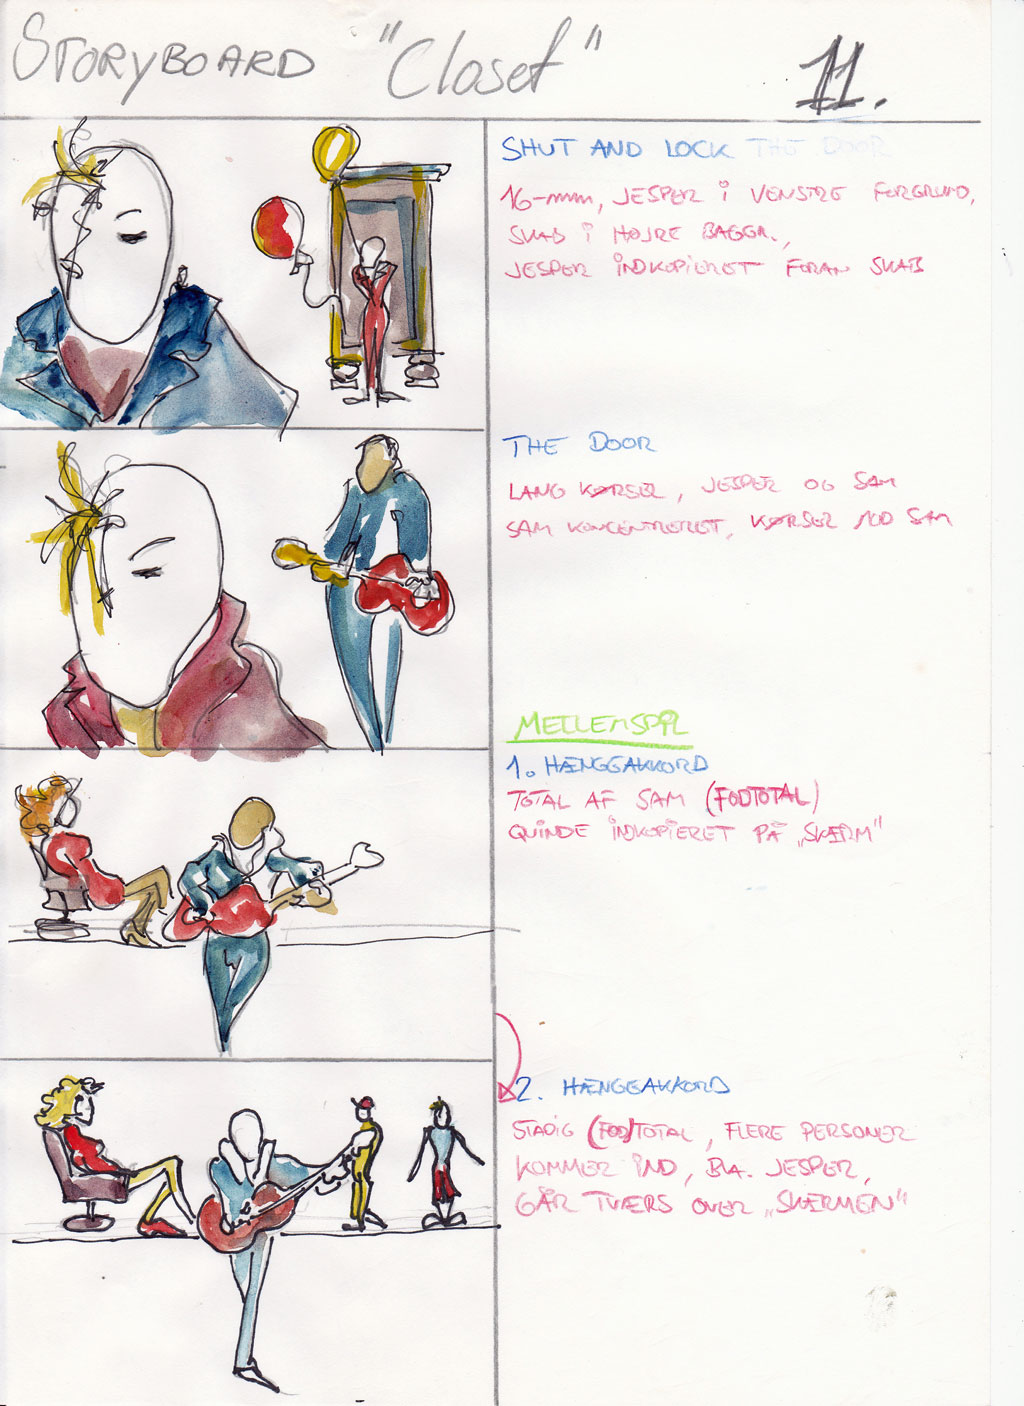 STORYBOARD "Closet" 11.
SHUT AND LOCK THE DOOR
16-mm, JESPER I VENSTRE FORGRUND,
SKAB I HØJRE BAGGR.,
JESPER INDKOPIERET FORAN SKAB
THE DOOR
LANG KØRSEL, JESPER OG SAM
SAM KONCENTRERET, KØRSEL MOD SAM
MELLEMSPIL
1. HÆNGEAKKORD
TOTAL AF SAM (FODTOTAL)
QUINDE INDKOPIERET PÅ „SKÆRM"
2. HÆNGEAKKORD
STADIG (FOD)TOTAL, FLERE PERSONER
KOMMER IND, BLA. JESPER,
GÅR TVÆRS OVER „SKÆRMEN"